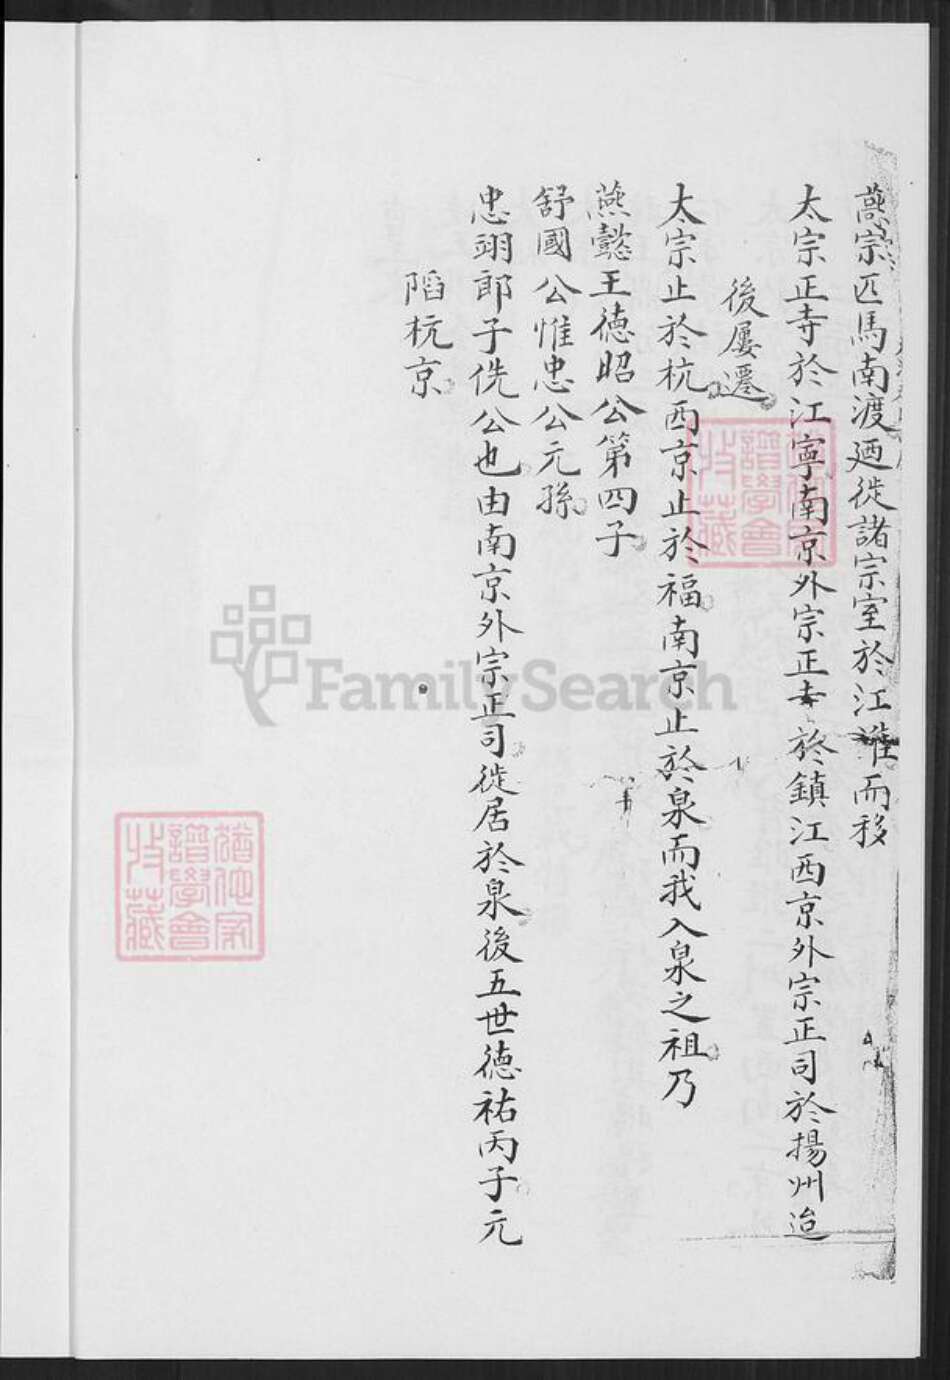 宗匹馬南渡廼徙諸宗室於江淮而移
太宗正寺於江寧南京外宗正寺於鎮江西京外宗正司於揚州迨
後屢遷
太宗止於杭西京止於福南京止於泉而我入泉之祖乃
燕懿王德昭公第四子
舒國公惟忠公元孫
忠翊郎子侁公也由南京外宗正司徙居於泉後五世德祐丙子元
陷杭京
FamilySearch
譜學會
收藏
譜學會
收藏